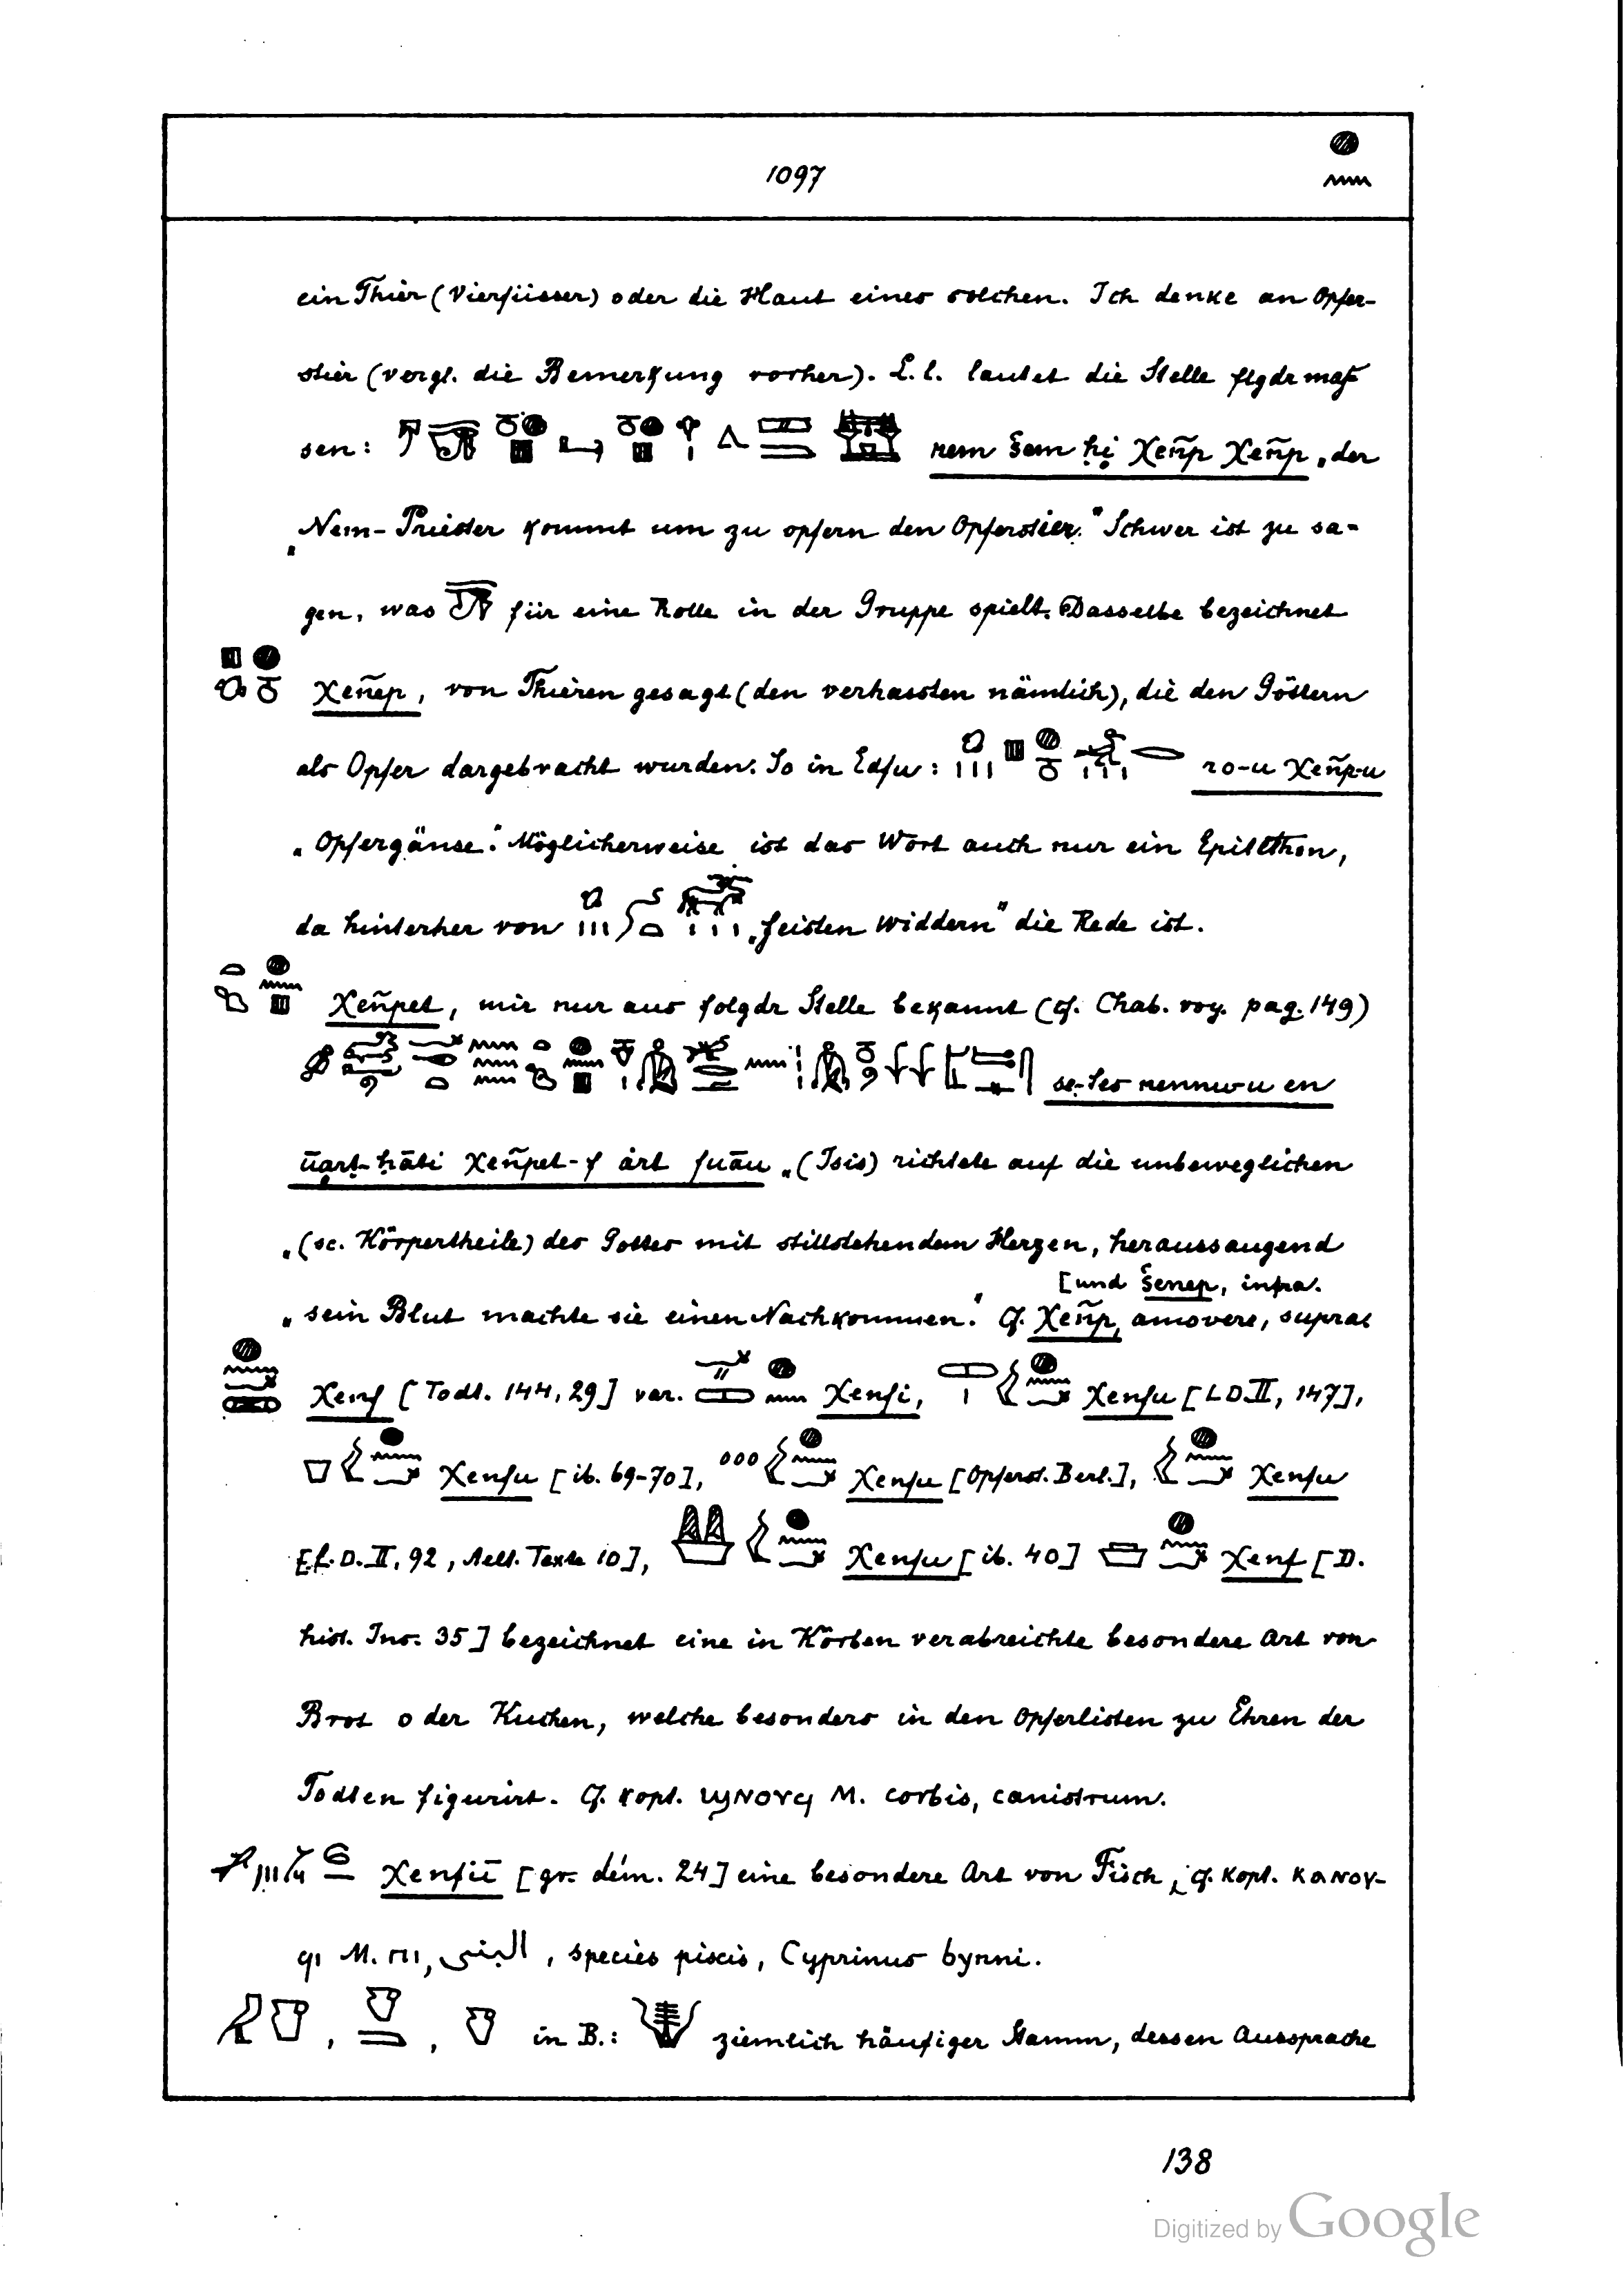 1097
ein Thier (Vierfüsser) oder die Haut eines solchen. Ich denke an Opfer-
stier (vergl. die Bemerkung vorher). L.l. lautet die Stelle flgdrmaß
sen: nem šem ḥi χeñp χeñp „der
„Nem-Priester kommt um zu opfern den Opferstier." Schwer ist zu sa-
gen, was für eine Rolle in der Gruppe spielt. Dasselbe bezeichnet
χeñep, von Thieren gesagt (den verhassten nämlich), die den Göttern
als Opfer dargebracht wurden. So in Edfu: ro-u χeñp-u
„Opfergänse." Möglicherweise ist das Wort auch nur ein Epiltthon,
da hinterher von „feisten Widdern" die Rede ist.
χeñpet, mir nur aus folgdr Stelle bekannt (cf. Chab. voy. pag. 149)
se-tes nennu-u en
ūart-ḥāti χeñpet-f art fuāu „(Isis) richtete auf die unbeweglichen
„(sc. Körpertheile) des Gottes mit stillstehendem Herzen, heraussaugend
[und šenep, infra.
„sein Blut machte sie einen Nachkommen." Cf. χeñp, amovere, supra
χenf [Todt. 144, 29] var. χenfi, χenfu [LD.II, 147],
χenfu [ib. 69-70], χenfu [Opferst. Berl.], χenfu
[L.D.II, 92, Aelt. Texte 10], χenfu [ib. 40] χenf [D.
hist. Ins. 35] bezeichnet eine in Körben verabreichte besondere Art von
Brot oder Kuchen, welche besonders in den Opferlisten zu Ehren der
Todten figurirt. Cf. kopt. ϣⲛⲟⲩϥ M. corbis, canistrum.
χenfiū [gr. dém. 24] eine besondere Art von Fisch, cf. kopt. ⲕⲁⲛⲟⲩ-
ϥⲓ M. ⲡⲓ, البنى, species piscis, Cyprinus bynni.
, , in B.: ziemlich häufiger Stamm, dessen Aussprache
138
Digitized by Google